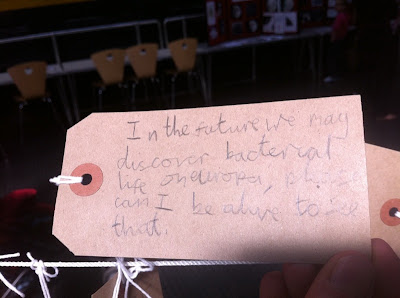 In the future we may
discover bacterial
life on europa, please
can I be alive to see
that.